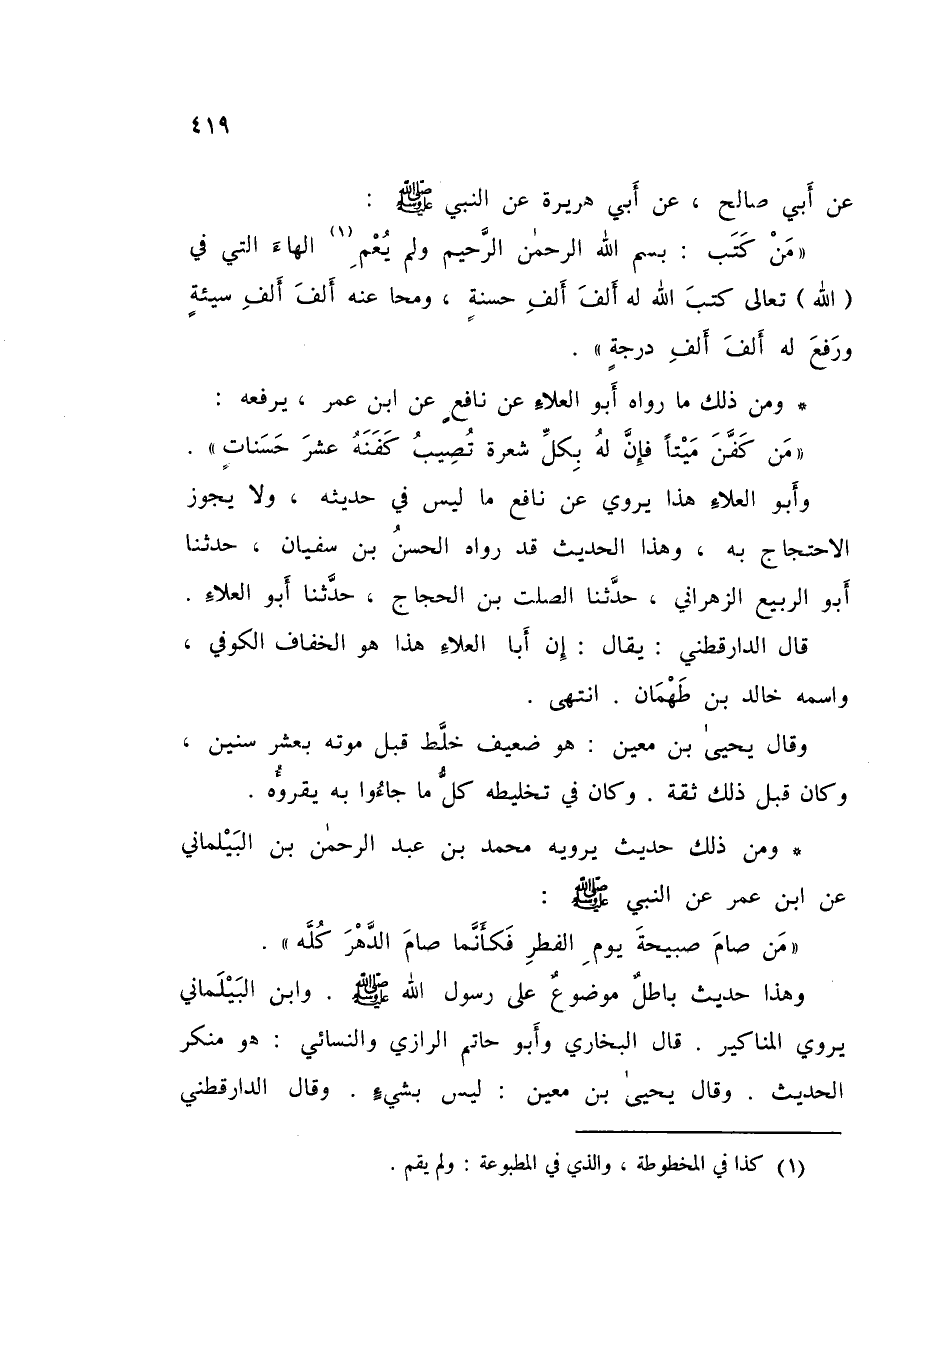 ٤١٩
عن أَبي صالح ، عن أَبي هريرة عن النبي ﷺ :
«مَنْ كَتَب : بسم الله الرحمٰن الرَّحيم ولم يُعْمِ (١) الهاءَ التي في
( الله ) تعالى كتبَ الله له أَلفَ أَلفِ حسنةٍ ، ومحا عنه أَلفَ أَلفِ سيئةٍ
ورَفعَ له أَلفَ أَلفِ درجةٍ» .
* ومن ذلك ما رواه أَبو العلاءِ عن نافعٍ عن ابن عمر ، يرفعه :
«مَن كَفَّنَ مَيْتاً فإِنَّ لهُ بِكلِّ شعرة تُصِيبُ كَفَنَهُ عشرَ حَسَناتٍ» .
وأَبو العلاءِ هذا يروي عن نافع ما ليس في حديثه ، ولا يجوز
الاحتجاج به ، وهذا الحديث قد رواه الحسنُ بن سفيان ، حدثنا
أَبو الربيع الزهراني ، حدَّثنا الصلت بن الحجاج ، حدَّثنا أَبو العلاءِ .
قال الدارقطني : يقال : إِن أَبا العلاءِ هذا هو الخفاف الكوفي ،
واسمه خالد بن طَهْمَان . انتهى .
وقال يحيىٰ بن معين : هو ضعيف خلَّط قبل موته بعشر سنين ،
وكان قبل ذلك ثقة . وكان في تخليطه كلُّ ما جاءُوا به يقروُّه .
* ومن ذلك حديث يرويه محمد بن عبد الرحمٰن بن البَيْلماني
عن ابن عمر عن النبي ﷺ :
«مَن صامَ صبيحةَ يومِ الفطرِ فَكأَنَّما صامَ الدَّهْرَ كُلَّه» .
وهذا حديث باطلٌ موضوعٌ على رسول الله ﷺ . وابن البَيْلَماني
يروي المناكير . قال البخاري وأَبو حاتم الرازي والنسائي : هو منكر
الحديث . وقال يحيىٰ بن معين : ليس بشيءٍ . وقال الدارقطني
(١) كذا في المخطوطة ، والذي في المطبوعة : ولم يقم .